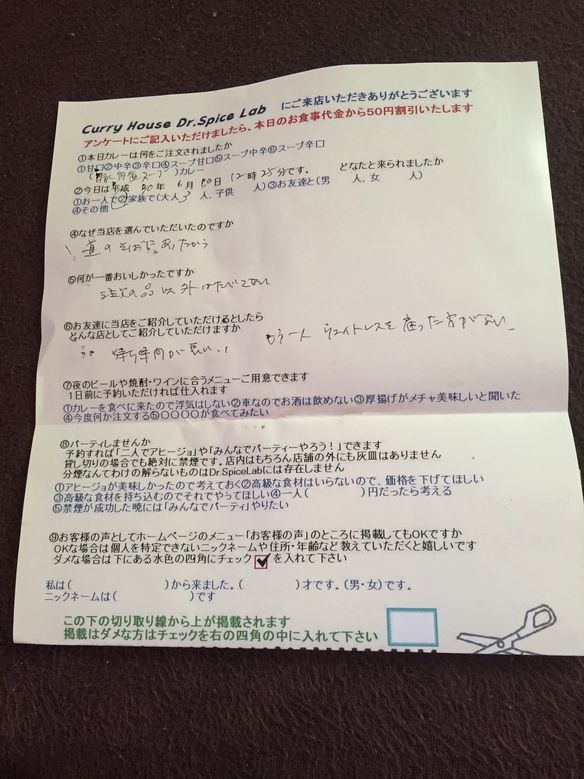 Curry House Dr.Spice Lab にご来店いただきありがとうございます
アンケートにご記入いただけましたら、本日のお食事代金から50円割引いたします
①本日カレーは何をご注文されましたか
①甘口②中辛③辛口④スープ甘口⑤スープ中辛⑥スープ辛口
スープ )カレー
②今日は平成 30年 6月 30日 12時 25分です。 どなたと来られましたか
①お一人で②家族で(大人3 人、子供 人)③お友達と(男 人、女 人)
④その他
④なぜ当店を選んでいただいたのですか
道のそばにあったから
⑤何が一番おいしかったですか
注文の品以外はたべてない
⑥お友達に当店をご紹介していただけるとしたら
どんな店としてご紹介していただけますか
待ち時間が長い、 もう一人 ウェイトレスを雇った方がよい
⑦夜のビールや焼酎・ワインに合うメニューご用意できます
1日前に予約いただければ仕入れます
①カレーを食べに来たので浮気はしない②車なのでお酒は飲めない③厚揚げがメチャ美味しいと聞いた
④今度何か注文する⑤〇〇〇〇が食べてみたい
⑧パーティしませんか
予約すれば「二人でアヒージョ」や「みんなでパーティーやろう!」できます
貸し切りの場合でも絶対に禁煙です。店内はもちろん店舗の外にも灰皿はありません
分煙なんてわけの解らないものはDr.SpiceLabには存在しません
①アヒージョが美味しかったので考えておく②高級な食材はいらないので、価格を下げてほしい
③高級な食材を持ち込むのでそれでやってほしい④一人( )円だったら考える
⑤禁煙が成功した暁には「みんなでパーティ」やりたい
⑨お客様の声としてホームページのメニュー「お客様の声」のところに掲載してもOKですか
OKな場合は個人を特定できないニックネームや住所・年齢など教えていただくと嬉しいです
ダメな場合は下にある水色の四角にチェック を入れて下さい
私は( )から来ました。( )才です。(男・女)です。
ニックネームは( )です
この下の切り取り線から上が掲載されます
掲載はダメな方はチェックを右の四角の中に入れて下さい